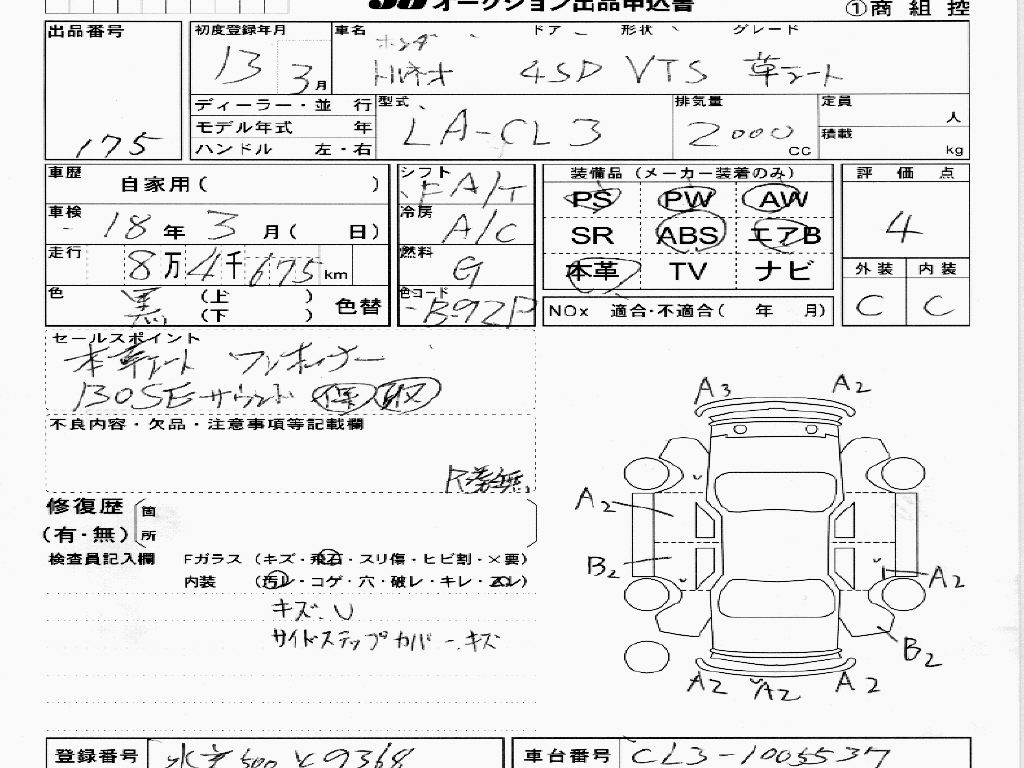 オークション出品申込書
①商 組 控
出品番号
175
初度登録年月
13 3月
車名 ドア 形状 グレード
ホンダ
トルネオ 4SD VTS 革シート
ディーラー・並 行
モデル年式 年
ハンドル 左・右
型式
LA-CL3
排気量
2000 CC
定員 人
積載 kg
車歴
自家用( )
車検
18年 3月( 日)
走行
8万4千675km
色
黒 (上 )
(下 ) 色替
シフト
FA/T
冷房
A/C
燃料
G
色コード
B92P
装備品 (メーカー装着のみ)
PS PW AW
SR ABS エアB
本革 TV ナビ
NOx 適合・不適合( 年 月)
評 価 点
4
外装 内装
C C
セールスポイント
本革シート ワンオーナー
BOSEサウンド 保 取
不良内容・欠品・注意事項等記載欄
R券無
修復歴
(有・無)
箇
所
検査員記入欄 Fガラス (キズ・飛石・スリ傷・ヒビ割・×要)
内装 (汚レ・コゲ・穴・破レ・キレ・ズレ)
キズ、U
サイドステップカバーキズ
A3 A2
A2
B2
A2
B2
A2 A2 A2
登録番号
500 と 9368
車台番号 CL3-1005537